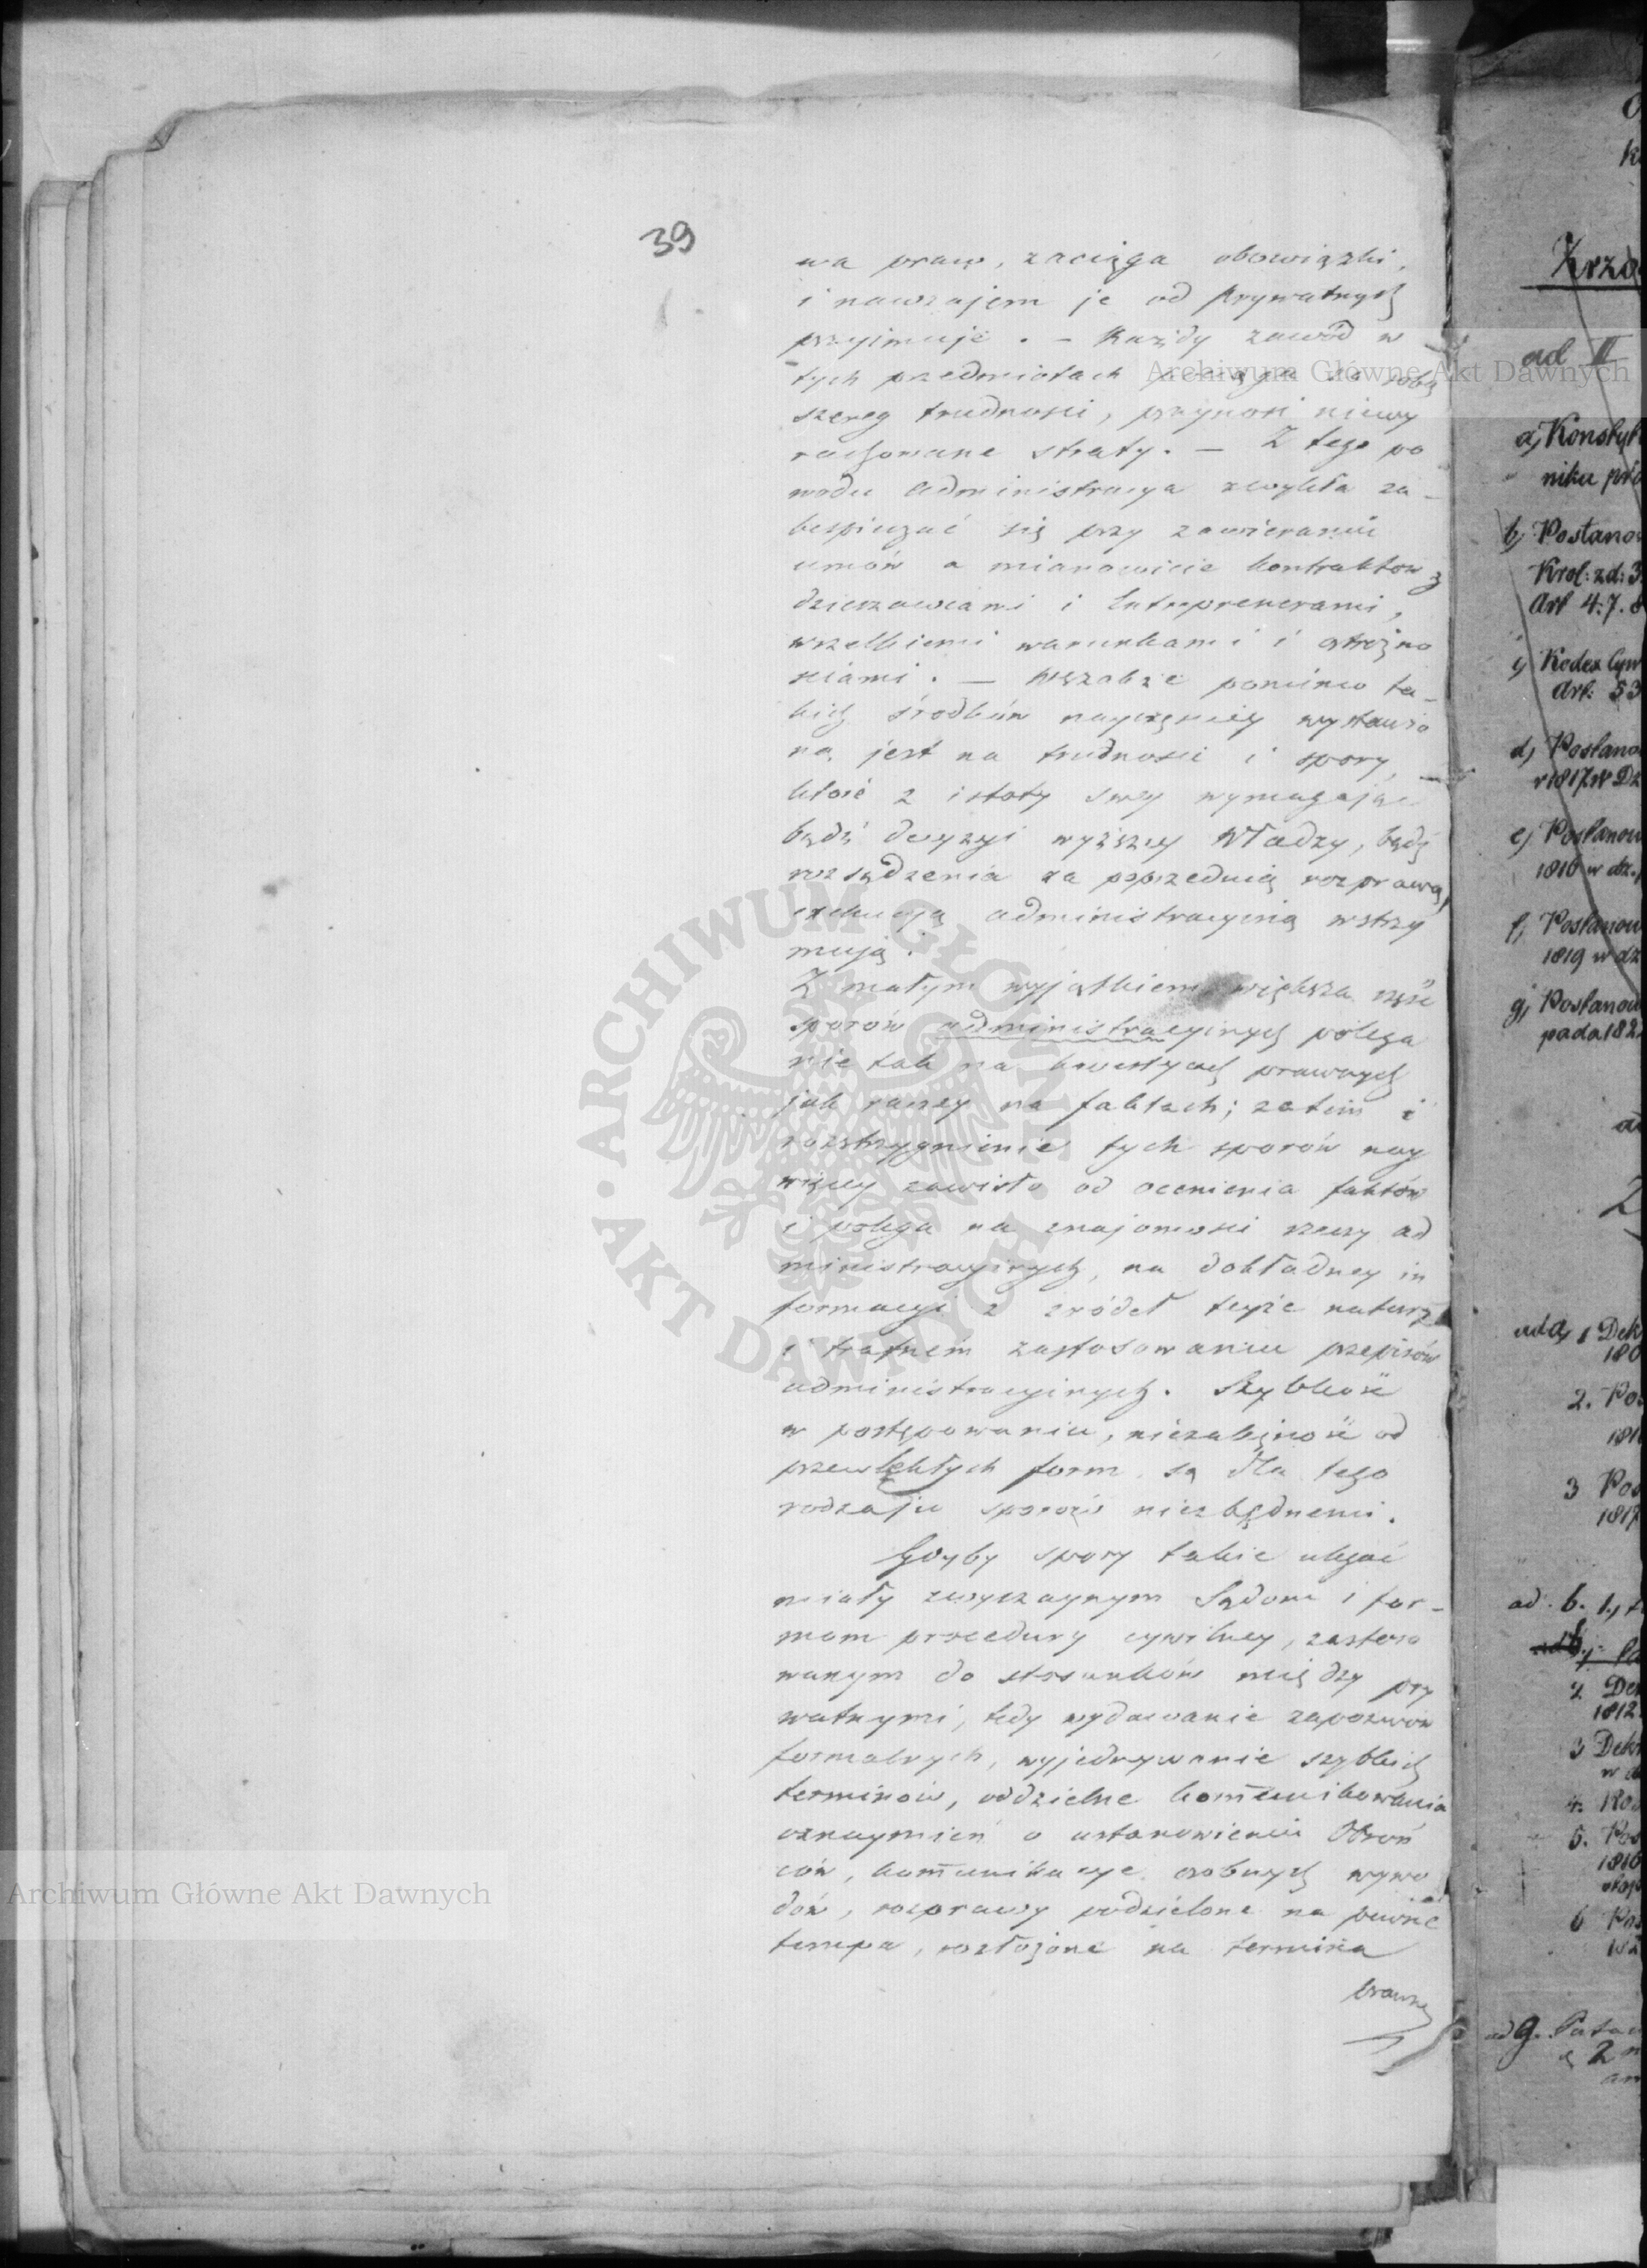 39
wa praw, zaciąga obowiązki,
i nawzajem je od prywatnych
przyimuje. – Każdy zawód w
tych przedmiotach pociąga za sobą
szereg trudności, przynosi niewy
rachowane straty. – Z tego po
wodu administracya zwykła za-
bespieczać się przy zawieraniu
umów a mianowicie kontraktow z
dzierzawcami i Entreprenerami,
wszelkiemi warunkami i ostrożno
ściami. – Wszakże pomimo ta-
kich środków nayczęściey wystawio
ną jest na trudności i spory, –
które z istoty swey wymagając
bądź decyzyi wyższey Władzy, bądź
rozsądzenia za poprzednią rozprawą,
exekucyą administracyiną wstrzy
mują.
Z małym wyjątkiem większa część
sporów administracyinych polega
nie tak na kwestyach prawnych
jak raczey na faktach; zatem i
rozstrzygnienie tych sporów nay
więcey zawisło od ocenienia faktów
i polega na znajomości rzeczy ad
ministracyinych, na dokładney in
formacyi z źródeł teyże natury
i trafném zastosowaniu przepisów
administracyinych. Szybkość
w postępowaniu, niezależność od
przewlekłych form są dla tego
rodzaju sporów niezbędnemi.
Gdyby spory takie ulegać
miały zwyczaynym Sądom i for-
mom procedury cywilney, zastoso
wanym do stosunków między pry
watnymi, tedy wydawanie zapozwów
formalnych, wyjednywanie szybkich
terminów, oddzielne kom̄unikowania
oznaymień o ustanowieniu Obroń
ców, kom̄unikacye osobnych wywo
dów, rozprawy podzielone na pewne
tempa, rozłożone na termina
prawne
Krzą
ad II
a) Konstyt
niku pra
b) Postanow
Krol: z d: 3
Art 4. 7. 8
c) Kodex Cyw
Art: 53
d) Postano
r 1817. w Dz
e) Postanow
1816 w dz.
f) Postanow
1819 w dz
g) Postanow
pada 182
ad a) 1 Dek
180
2. Pos
181
3 Pos
1817
ad. b. 1.)
2 Dek
1812
3 Dekr
w d
4. Pos
5. Pos
1816
6 Pos
182
ad g.
Archiwum Główne Akt Dawnych
ARCHIWUM GŁÓWNE · AKT DAWNYCH ·
Archiwum Główne Akt Dawnych